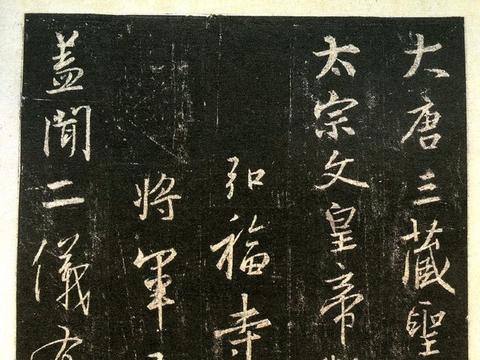 大唐三藏聖
太宗文皇帝
弘福寺
將軍
盖聞二儀有